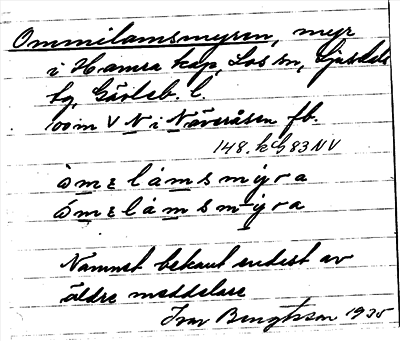 Ommilamsmyren, myr
i Hamra kap, Los sn, Ljusdals
tg, Gävleb. l.
100 m V N i Näveråsen fb.
148. kq 83 NV
ò m ɛ l á m s m ý r a
ó m ɛ l à m s m ỳ r a
Namnet bekant endast av
äldre meddelare
Ivar Bengtsson 1935